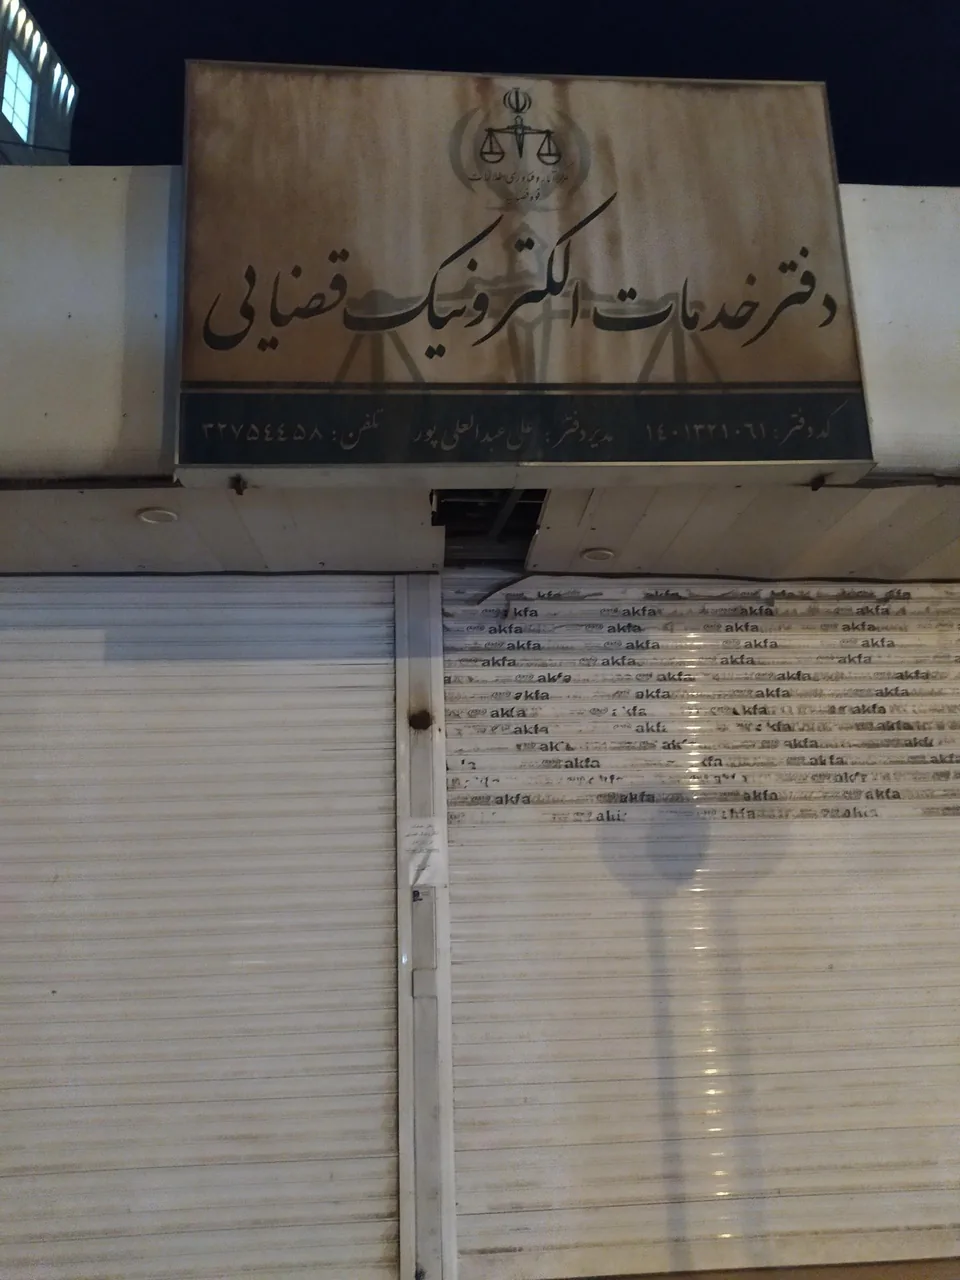 مرکز آمار و فناوری اطلاعات
قوه قضائیه
دفتر خدمات الکترونیک قضایی
کد دفتر: ۱۴۰۱۳۲۱۰۶۱ مدیر دفتر: علی عبدالعلی پور تلفن: ۳۲۷۵۴۴۵۸
akfa akfa akfa
akfa akfa akfa akfa
akfa akfa akfa
akfa akfa akfa akfa
akfa akfa akfa akfa
akfa akfa akfa akfa
akfa akfa akfa
akfa akfa
akfa akfa
akfa
akfa akfa akfa
akfa akfa akfa akfa